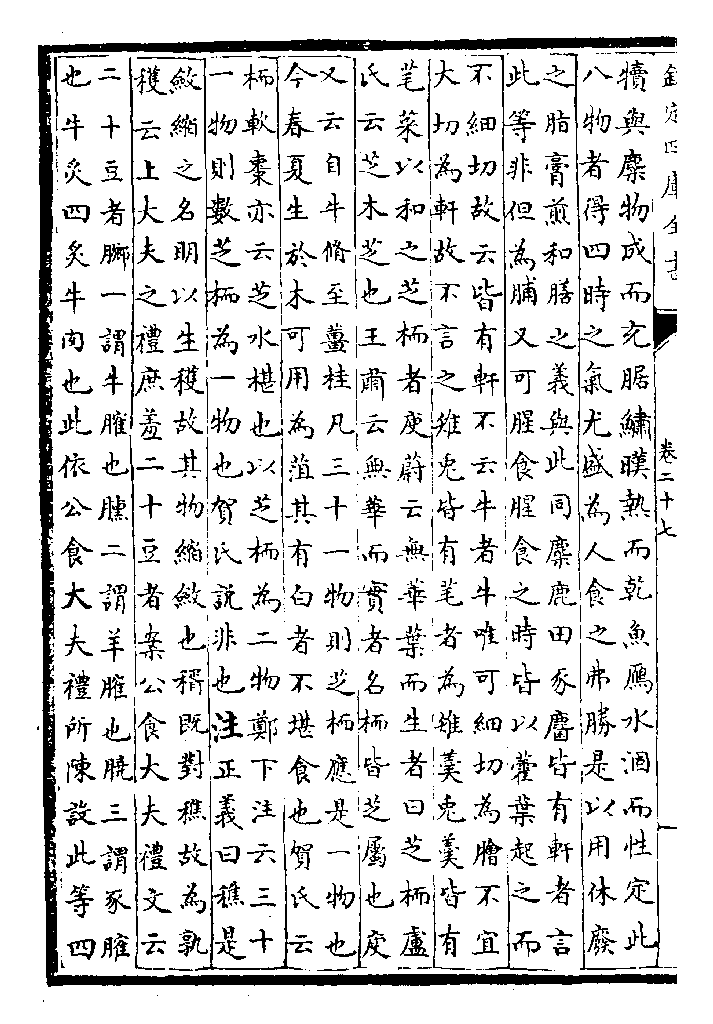 欽定四庫全書
卷二十七
一
犢與麛物成而充腒鱐暵熱而乾魚鴈水涸而性定此
八物者得四時之氣尤盛為人食之弗勝是以用休廢
之脂膏煎和膳之義與此同麋鹿田豕麕皆有軒者言
此等非但為脯又可腥食腥食之時皆以藿葉起之而
不細切故云皆有軒不云牛者牛唯可細切為膾不宜
大切為軒故不言之雉兔皆有芼者為雉羹兔羹皆有
芼菜以和之芝栭者庾蔚云無華葉而生者曰芝栭盧
氏云芝木芝也王肅云無華而實者名栭皆芝屬也庾
又云自牛脩至薑桂凡三十一物則芝栭應是一物也
今春夏生於木可用為菹其有白者不堪食也賀氏云
栭軟棗亦云芝水椹也以芝栭為二物鄭下注云三十
一物則數芝栭為一物也賀氏說非也注正義曰穛是
斂縮之名明以生穫故其物縮斂也稰既對穛故為孰
穫云上大夫之禮庶羞二十豆者案公食大夫禮文云
二十豆者膷一謂牛臛也臐二謂羊臛也膮三謂豕臛
也牛炙四炙牛肉也此依公食大夫禮所陳設此等四